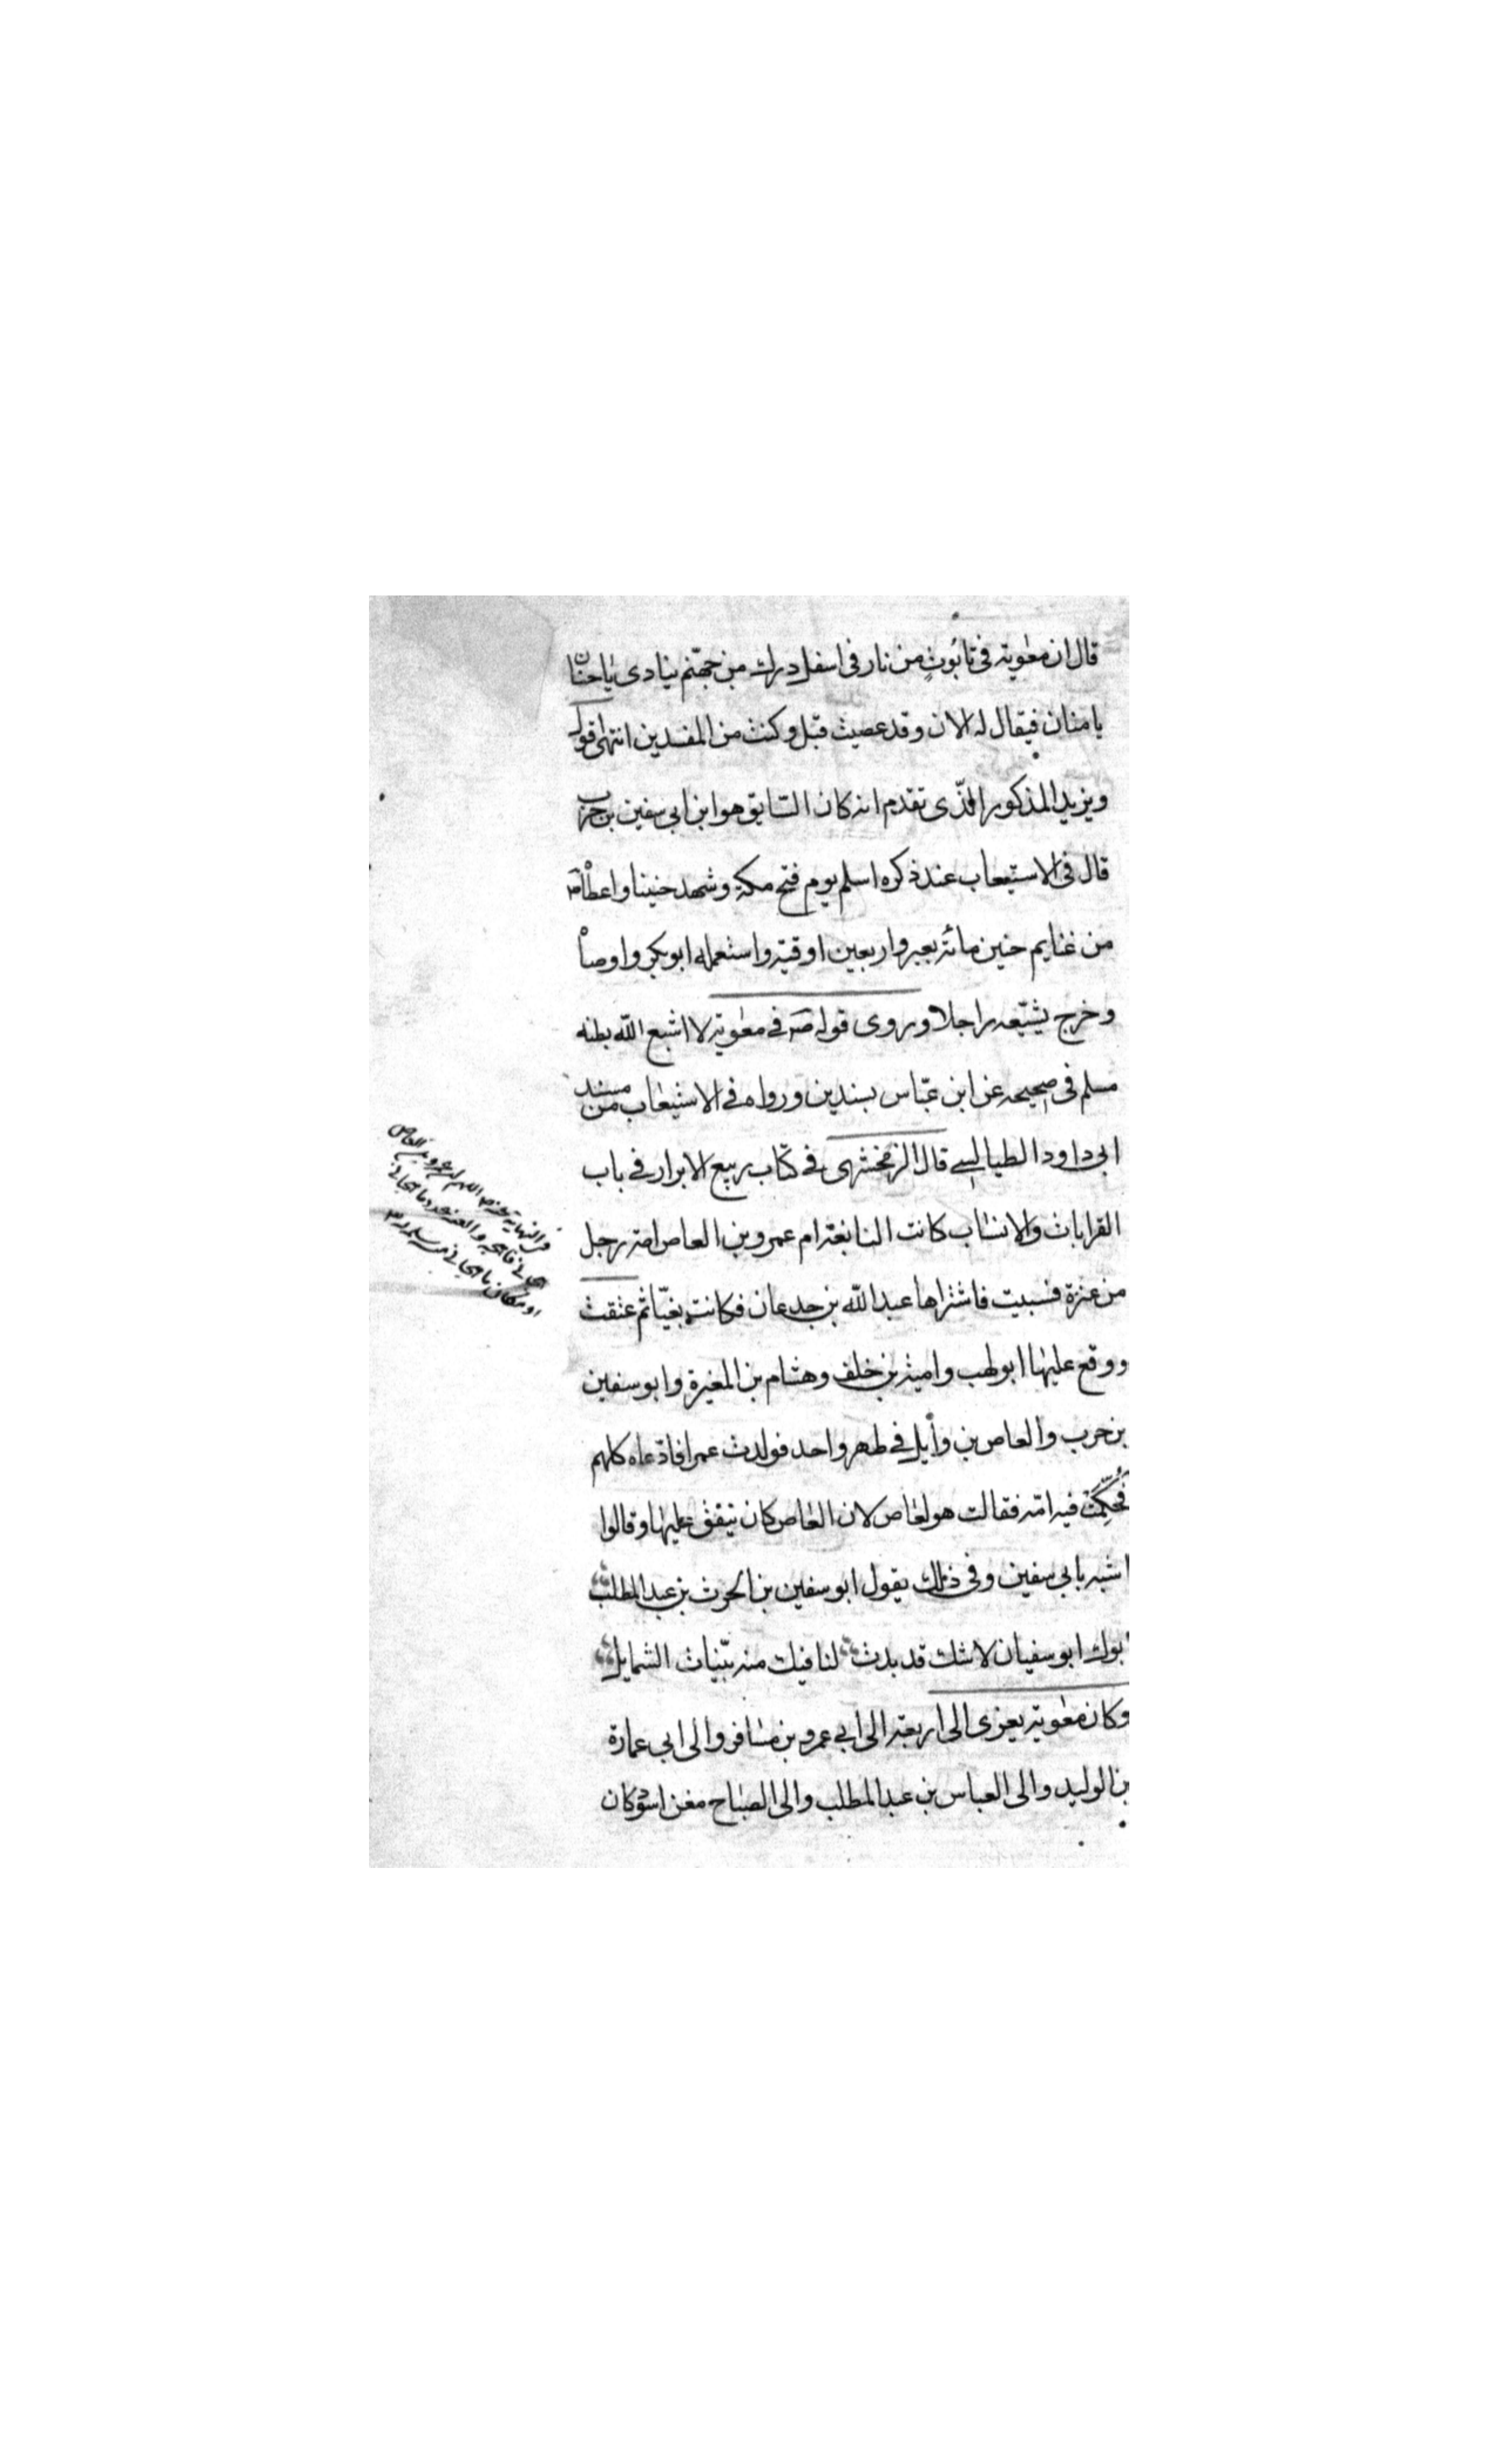 قال ان معوية فى تابوت من نار فى اسفل درك من جهنم ينادى يا حنان
يا منان فيقال له الان وقد عصيت قبل وكنت من المفسدين انتهى قوله
ويزيد المذكور الذى تقدم انه كان السابق هو ابن ابى سفين بن حرب
قال فى الاستيعاب عند ذكره اسلم يوم فتح مكة وشهد حنينا واعطاه ص
من غنايم حنين مائة بعير واربعين اوقية واستعمله ابو بكر واوصاه
وخرج يشيعه راجلا وروى قوله ص فى معوية لا اشبع الله بطنه
مسلم فى صحيحه عن ابن عباس بسندين ورواه فى الاستيعاب من مسند
ابى داود الطيالسى قال الزمخشرى فى كتاب ربيع الابرار فى باب
القرابات والانساب كانت النابغة ام عمرو بن العاص امة رجل
من عنزة فسبيت فاشتراها عبد الله بن جدعان فكانت بغيا ثم عتقت
ووقع عليها ابو لهب وامية بن خلف وهشام بن المغيرة وابو سفين
بن حرب والعاص بن وايل فى طهر واحد فولدت عمرا فادعاه كلهم
فحكمت فيه امه فقالت هو لعاص لان العاص كان ينفق عليها وقالوا
اشبه بابى سفين وفى ذلك يقول ابو سفين بن الحرث بن عبد المطلب
ابوك ابو سفيان لا شك قد بدت لنا فيك منه بينات الشمايل
وكان معوية يعزى الى اربعة الى ابى عمرو بن مسافر والى ابى عمارة
بن الوليد والى العباس بن عبد المطلب والى الصباح مغن اسود كان
فى النهاية اللهم ان عمرو بن العاص
هجانى فاهجه والعنه عدد ما هجانى
او مكان ما هجانى